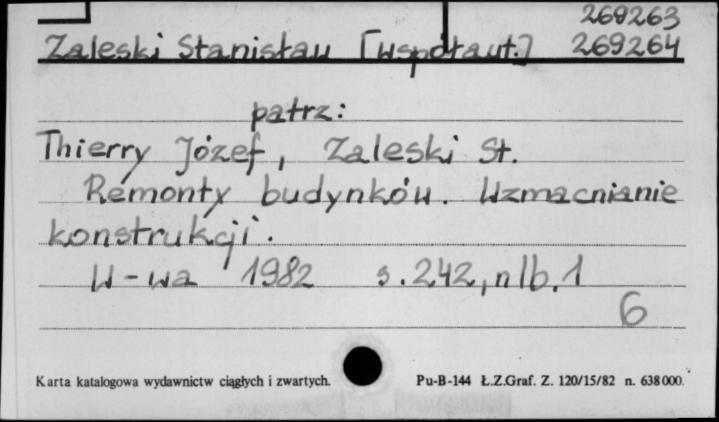 269263
Zaleski Stanisław [współaut.] 269264
patrz:
Thierry Józef, Zaleski St.
Remonty budynków. Wzmacnianie
konstrukcji.
W-wa 1982 s. 242, nlb. 1
6
Karta katalogowa wydawnictw ciągłych i zwartych. Pu-B-144 Ł.Z.Graf. Z. 120/15/82 n. 638000.